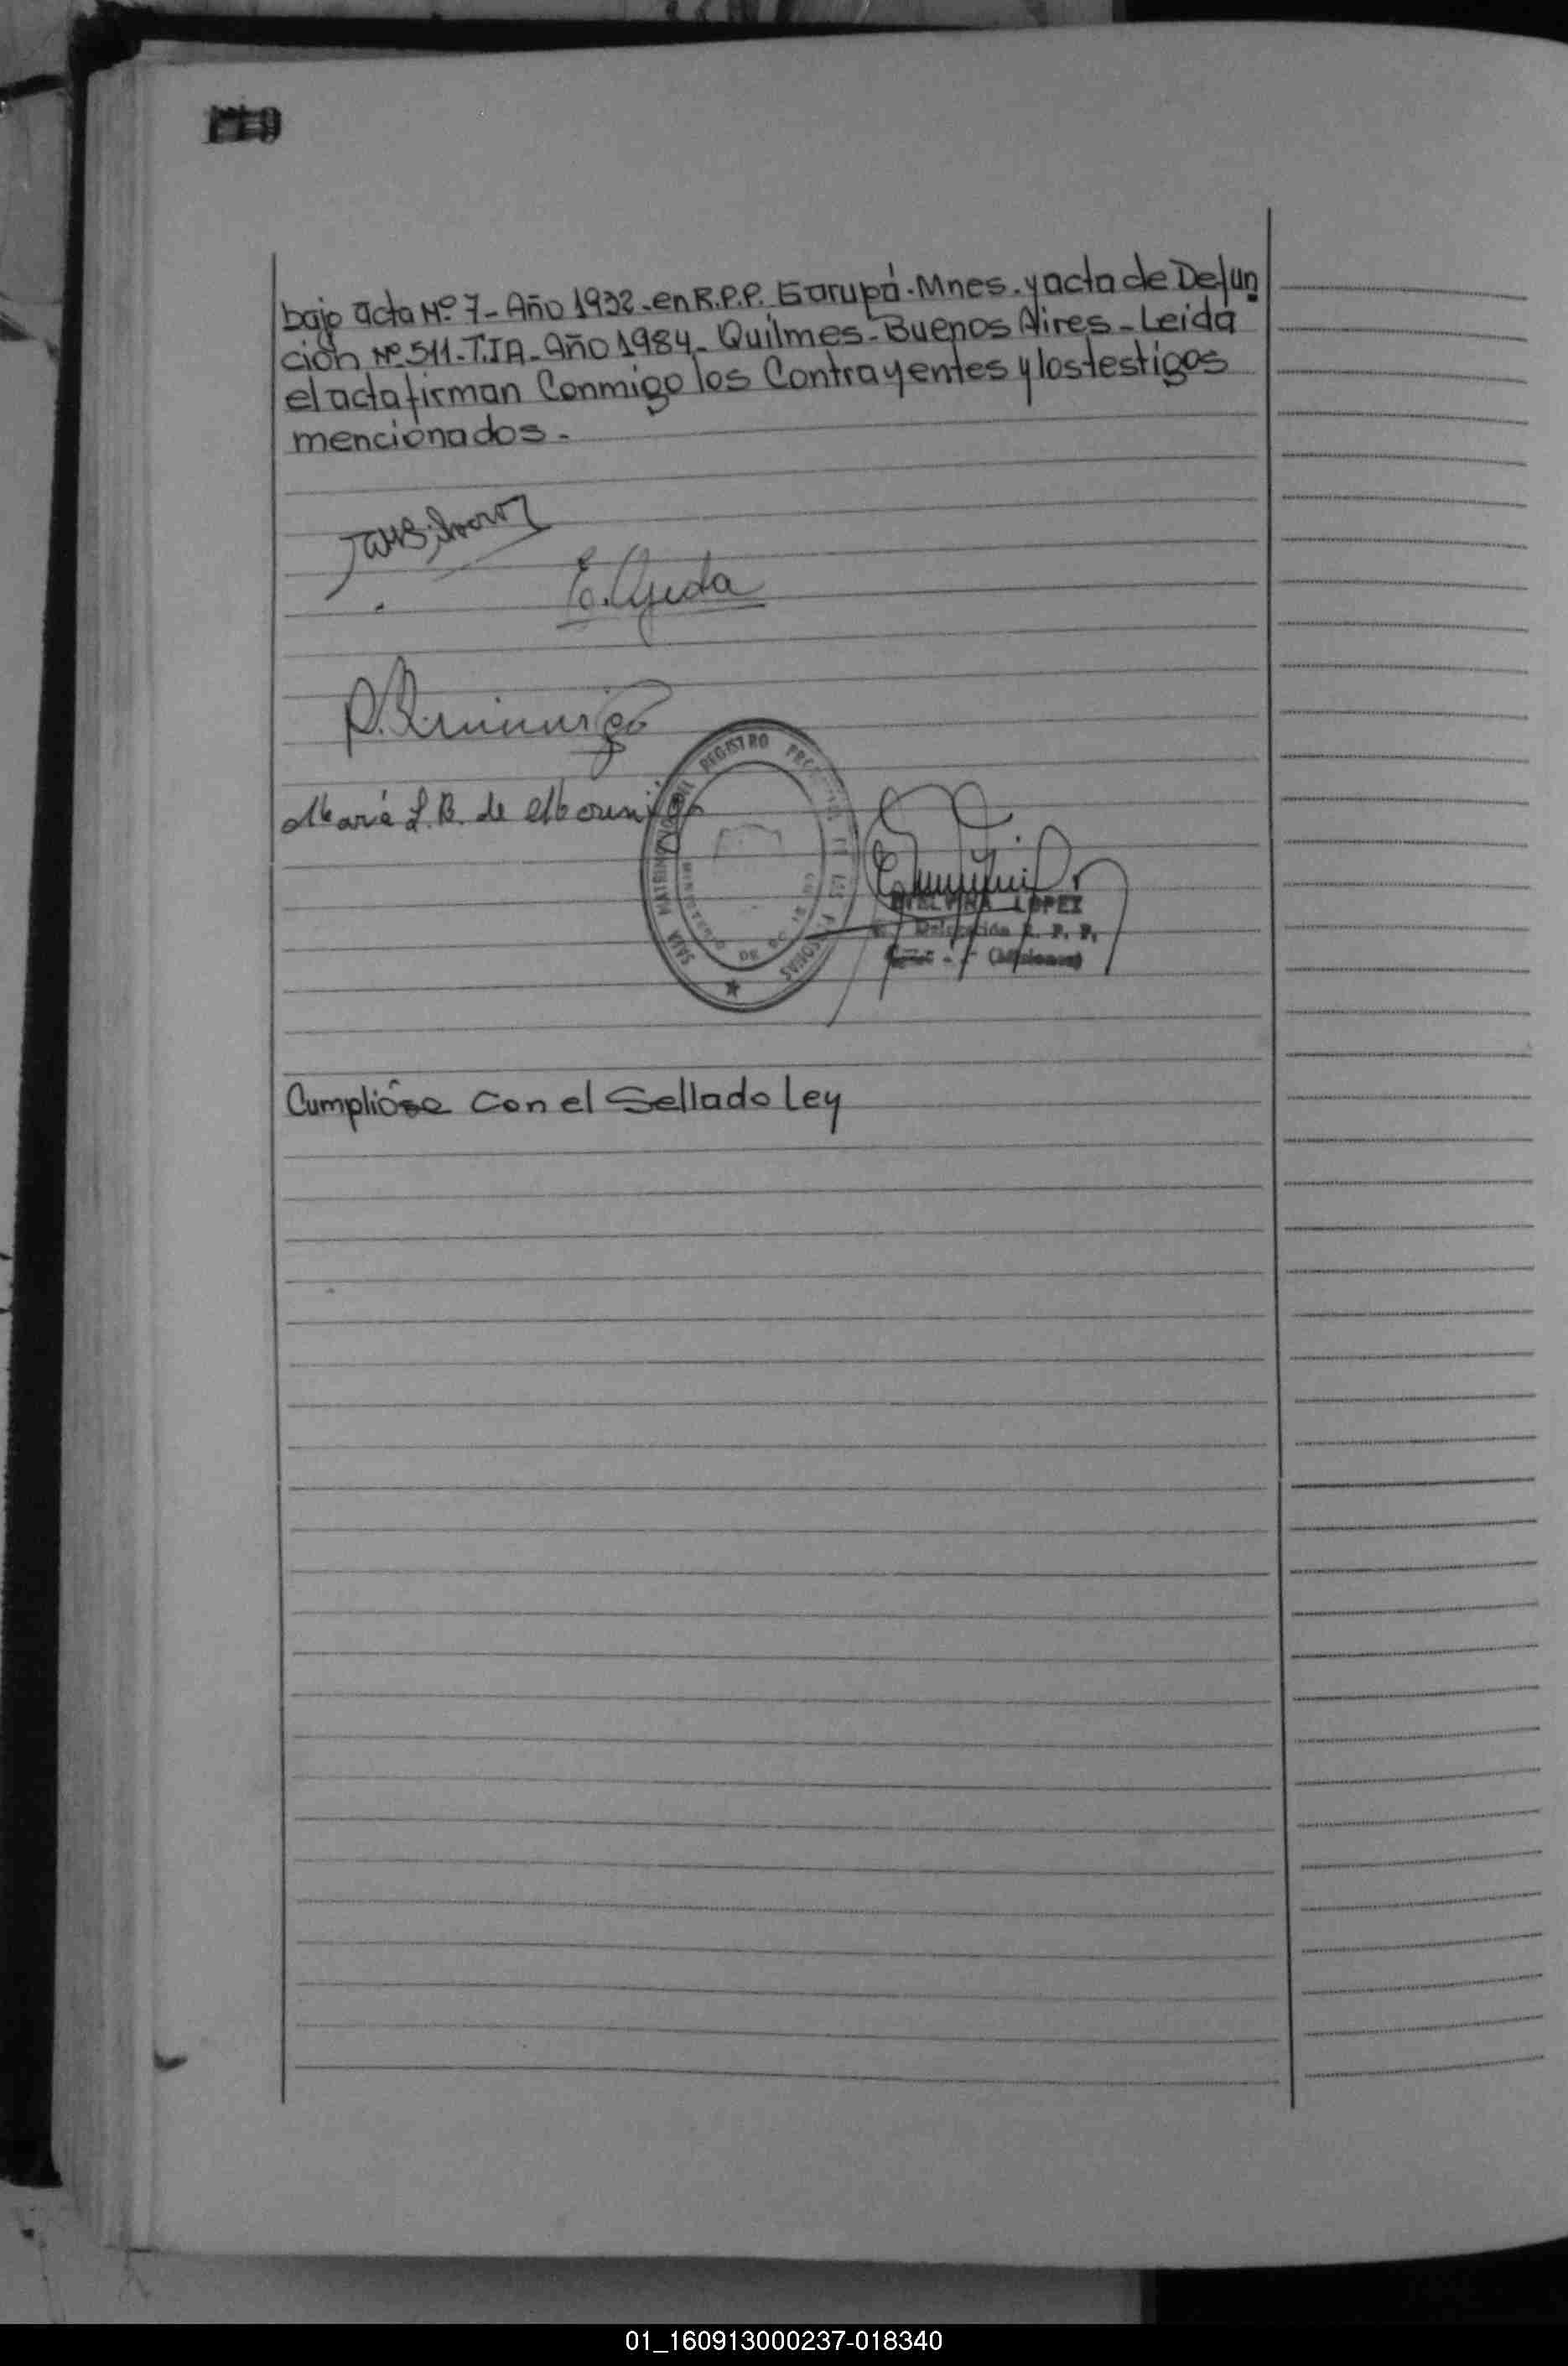 bajo acta Nº 7 - Año 1932 - en R.P.P. Garupá - Mnes. y acta de Defun
ción Nº 511 - T.I A - Año 1984 - Quilmes - Buenos Aires - Leida
el acta firman Conmigo los Contrayentes y los testigos
mencionados.-
E. Ojeda
María L.B. de
REGISTRO
DE
LOPEZ
Delegación R. P. P.
(Misiones)
Cumplióse con el Sellado Ley
01_160913000237-018340